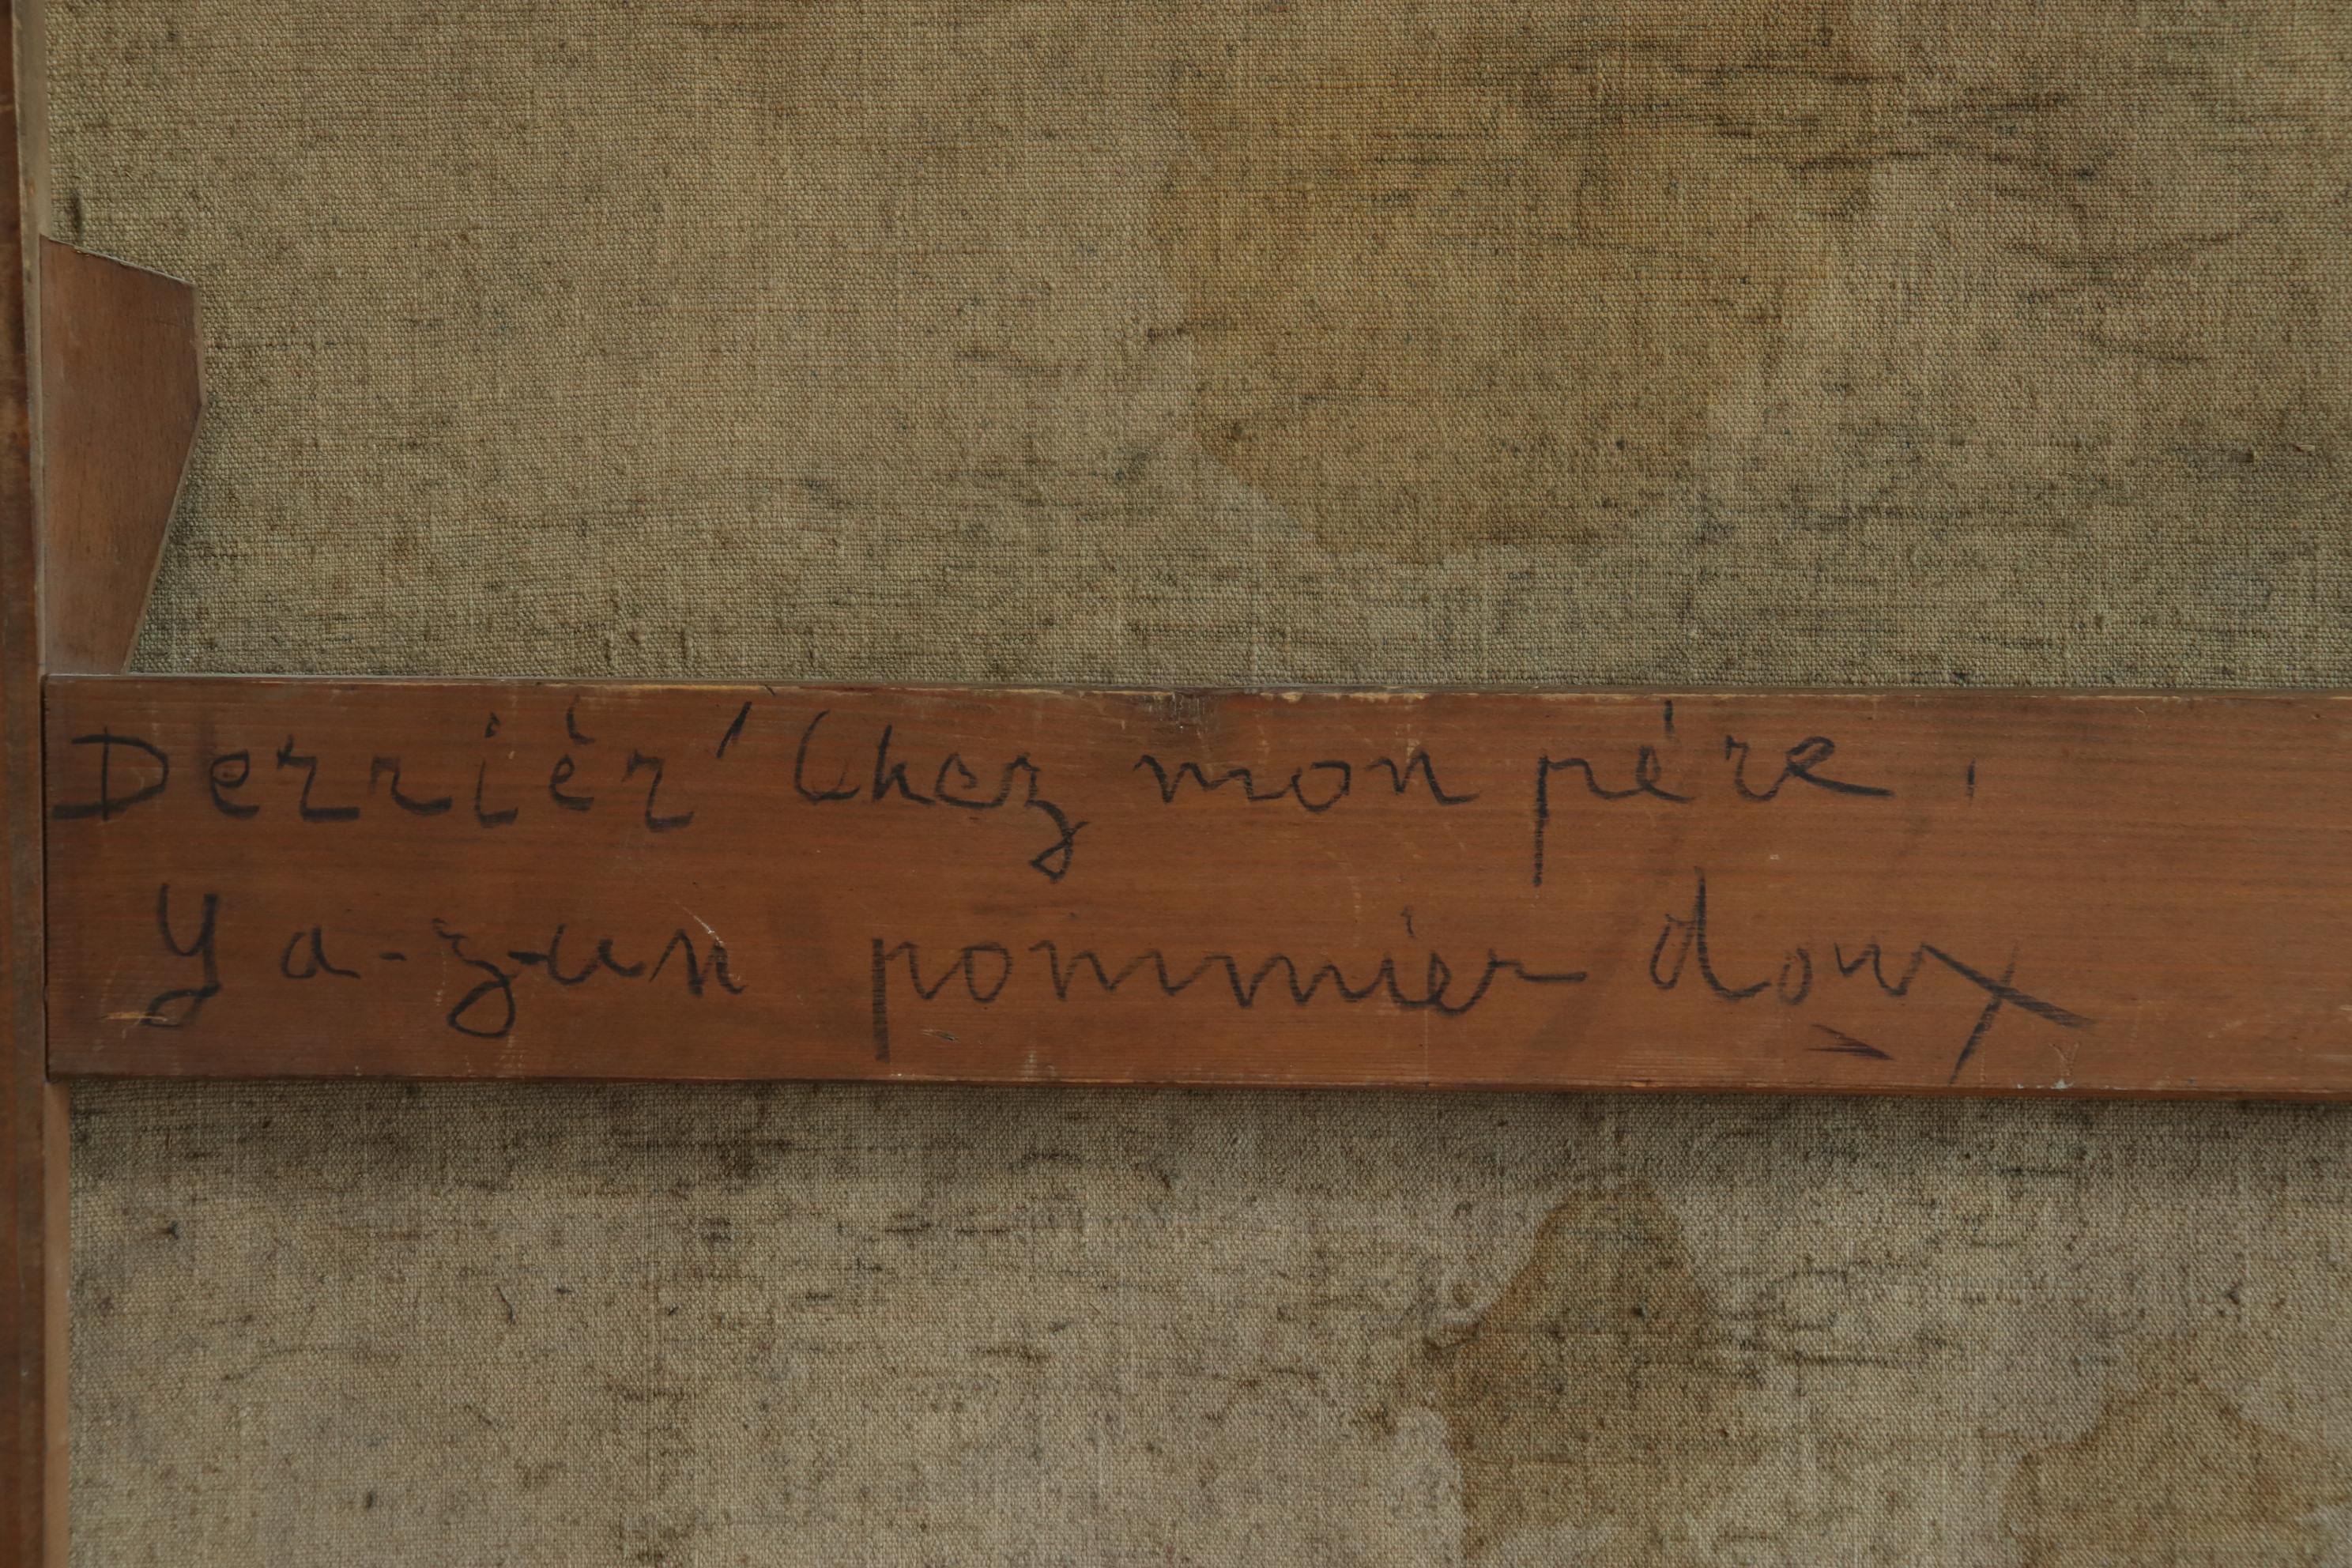 Derrièr' Chez mon père,
Y a-z-un pommier doux